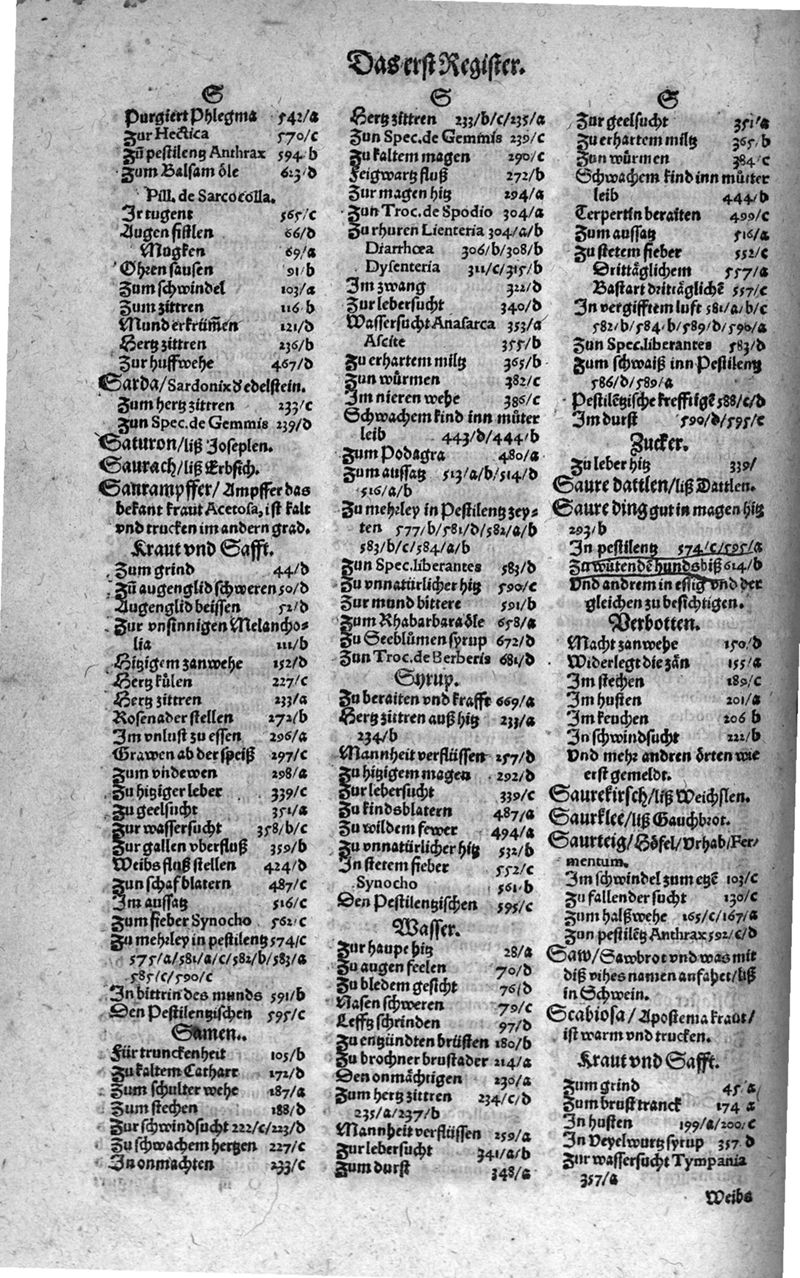 Das erst Register.
S
Purgiert Phlegma 542/a
Zur Hectica 570/c
Zů pestilentz Anthrax 594 b
Zum Balsam öle 623/d
Pill. de Sarcocolla.
Ir tugent 565/c
Augen fistlen 66/d
Mugken 69/a
Ohren sausen 91/b
Zum schwindel 103/a
Zum zittren 116 b
Mund erkrüm̃en 121/d
Hertz zittren 236/b
Zur huffwehe 467/d
Sarda/ Sardonix d' edelstein.
Zum hertz zittren 233/c
Zun Spec. de Gemmis 239/d
Saturon/ liß Joseplen.
Saurach/ liß Erbsich.
Saurampffer/ Ampffer das
bekant kraut Acetosa, ist kalt
vnd trucken im andern grad.
Kraut vnd Safft.
Zum grind 44/d
Zů augenglid schweren 50/d
Augenglid beissen 52/d
Zur vnsinnigen Melancho-
lia 111/b
Hitzigem zanwehe 152/d
Hertz külen 227/c
Hertz zittren 233/a
Rosenader stellen 272/b
Im vnlust zu essen 296/a
Grawen ab der speiß 297/c
Zum vndewen 298/a
Zu hitziger leber 339/c
Zu geelsucht 351/a
Zur wassersucht 358/b/c
Zur gallen vberfluß 359/b
Weibs fluß stellen 424/d
Zun schaf blatern 487/c
Im aussatz 516/c
Zum fieber Synocho 562/c
Zu mehrley in pestilentz 574/c
575/a/581/a/c/582/b/583/a
585/c/590/c
In bittrin des munds 591/b
Den Pestilentzischen 595/c
Samen.
Für trunckenheit 105/b
Zu kaltem Catharr 172/d
Zum schulter wehe 187/a
Zum stechen 188/d
Zur schwindsucht 222/c/223/d
Zu schwachem hertzen 227/c
In onmachten 233/c
S
Hertz zittren 233/b/c/235/a
Zun Spec. de Gemmis 239/c
Zu kaltem magen 290/c
Feigwartz fluß 272/b
Zur magen hitz 294/a
Zun Troc. de Spodio 304/a
Zu rhuren Lienteria 304/a/b
Diarrhœa 306/b/308/b
Dysenteria 311/c/315/b
Im zwang 322/d
Zur lebersucht 340/d
Wassersucht Anasarca 353/a
Ascite 355/b
Zu erhartem miltz 365/b
Zun würmen 382/c
Im nieren wehe 386/c
Schwachem kind inn můter
leib 443/d/444/b
Zum Podagra 480/a
Zum aussatz 513/a/b/514/d
516/a/b
Zu mehrley in Pestilentz zey-
ten 577/b/581/d/582/a/b
583/b/c/584/a/b
Zun Spec. liberantes 583/d
Zu vnnatürlicher hitz 590/c
Zur mund bittere 591/b
Zum Rhabarbara öle 658/a
Zu Seeblůmen syrup 672/d
Zun Troc. de Berberis 681/d
Syrup.
Zu beraiten vnd krafft 669/a
Hertz zittren auß hitz 233/a
234/b
Mannheit verflüssen 257/d
Zu hitzigem magen 292/d
Zur lebersucht 339/c
Zu kindsblatern 487/a
Zu wildem fewer 494/a
Zu vnnatürlicher hitz 532/b
In stetem fieber 552/c
Synocho 561/b
Den Pestilentzischen 595/c
Wasser.
Zur haupt hitz 28/a
Zu augen feelen 70/d
Zu bledem gesicht 76/d
Nasen schweren 79/c
Lefftz schrinden 97/d
Zu entzündten brüsten 180/b
Zu brochner brustader 214/a
Den onmächtigen 230/a
Zum hertz zittren 234/c/d
235/a/237/b
Mannheit verflüssen 259/a
Zur lebersucht 341/a/b
Zum durst 348/a
S
Zur geelsucht 351/a
Zu erhartem miltz 365/b
Zun würmen 384/c
Schwachem kind inn můter
leib 444/b
Terpertin beraiten 499/c
Zum aussatz 516/a
Zu stetem fieber 552/c
Drittäglichem 557/a
Bastart drittäglichē 557/c
In vergifftem luft 581/a/b/c
582/b/584/b/589/d/590/a
Zun Spec. liberantes 583/d
Zum schwaiß inn Pestilentz
586/d/589/a
Pestilētzische kreffrigē 588/c/d
Im durst 590/d/595/c
Zucker.
Zu leber hitz 339/
Saure dattlen/ liß Dattlen.
Saure ding gut in magen hitz
293/b
In pestilentz 574/c/595/a
Zu wütendē hunds biß 614/b
Vnd andrem in essig vnd der
gleichen zu besichtigen.
Verbotten.
Macht zanwehe 150/d
Widerlegt die zän 155/a
Im stechen 189/c
Im husten 201/a
Im keuchen 206 b
In schwindsucht 222/b
Vnd mehr andren örten wie
erst gemeldt.
Saurekirsch/ liß Weichslen.
Saurklee/ liß Gauchbrot.
Saurteig/ Hösel/ Vrhab/ Fer-
mentum.
Im schwindel zum etzē 103/c
Zu fallender sucht 130/c
Zum halßwehe 165/c/167/a
Zun pestilētz Anthrax 592/c/d
Saw/ Sawbrot vnd was mit
diß vihes namen anfahet/ liß
in Schwein.
Scabiosa/ Apostema kraut/
ist warm vnd trucken.
Kraut vnd Safft.
Zum grind 45/a
Zum brust tranck 174 a
In husten 199/a/200/c
In Veyelwurtz syrup 357 d
Zur wassersucht Tympania
357/a
Weibs